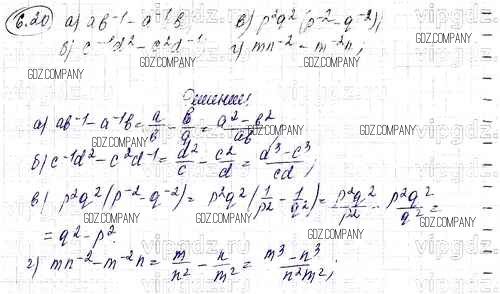 6.20 а) ab⁻¹ - a⁻¹b; в) p²q²(p⁻² - q⁻²);
б) c⁻¹d² - c²d⁻¹; г) mn⁻² - m⁻²n;
Решение:
а) ab⁻¹ - a⁻¹b = a/b - b/a = (a² - b²)/ab;
б) c⁻¹d² - c²d⁻¹ = d²/c - c²/d = (d³ - c³)/cd;
в) p²q²(p⁻² - q⁻²) = p²q²(1/p² - 1/q²) = p²q²/p² - p²q²/q² =
= q² - p².
г) mn⁻² - m⁻²n = m/n² - n/m² = (m³ - n³)/n²m²;
GDZ.COMPANY
vipgdz